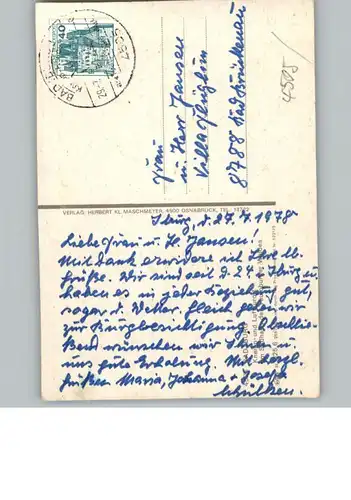 40
BAD
Frau
u. Herr Jansen
Villa Füglein
8788 Bad Brückenau
4505/
VERLAG: HERBERT KL. MASCHMEYER, 4500 OSNABRÜCK, TEL.
Iburg, d. 27.7.1978
Liebe Frau u. H. Jansen!
Mit Dank erwidere ich Ihre lb.
Grüße. Wir sind seit d. 24. i. Iburg u.
haben es in jeder Beziehung gut,
sogar d. Wetter. Gleich gehen wir
zur Burgbesichtigung. Abschlie-
ßend wünschen wir Ihnen u.
uns gute Erholung. Mit herzl.
Grüßen Maria, Johanna + Joseph
Schülken.